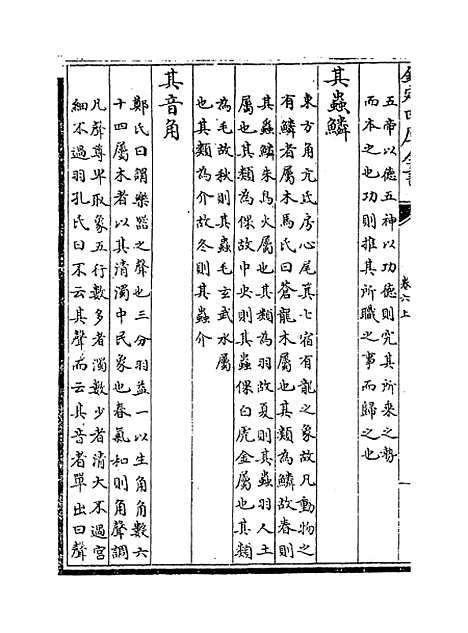 欽定四庫全書
卷六上
五帝以德五神以功德則究其所來之勢
而本之也功則推其所職之事而歸之也
其蟲鱗
東方角亢氐房心尾箕七宿有龍之象故凡動物之
有鱗者屬木馬氏曰蒼龍木屬也其類為鱗故春則
其蟲鱗朱鳥火屬也其類為羽故夏則其蟲羽人土
屬也其類為倮故中央則其蟲倮白虎金屬也其類
為毛故秋則其蟲毛玄武水屬
也其類為介故冬則其蟲介
其音角
鄭氏曰謂樂器之聲也三分羽益一以生角角數六
十四屬木者以其清濁中民象也春氣和則角聲調
凡聲尊卑取象五行數多者濁數少者清大不過宮
細不過羽孔氏曰不云其聲而云其音者單出曰聲